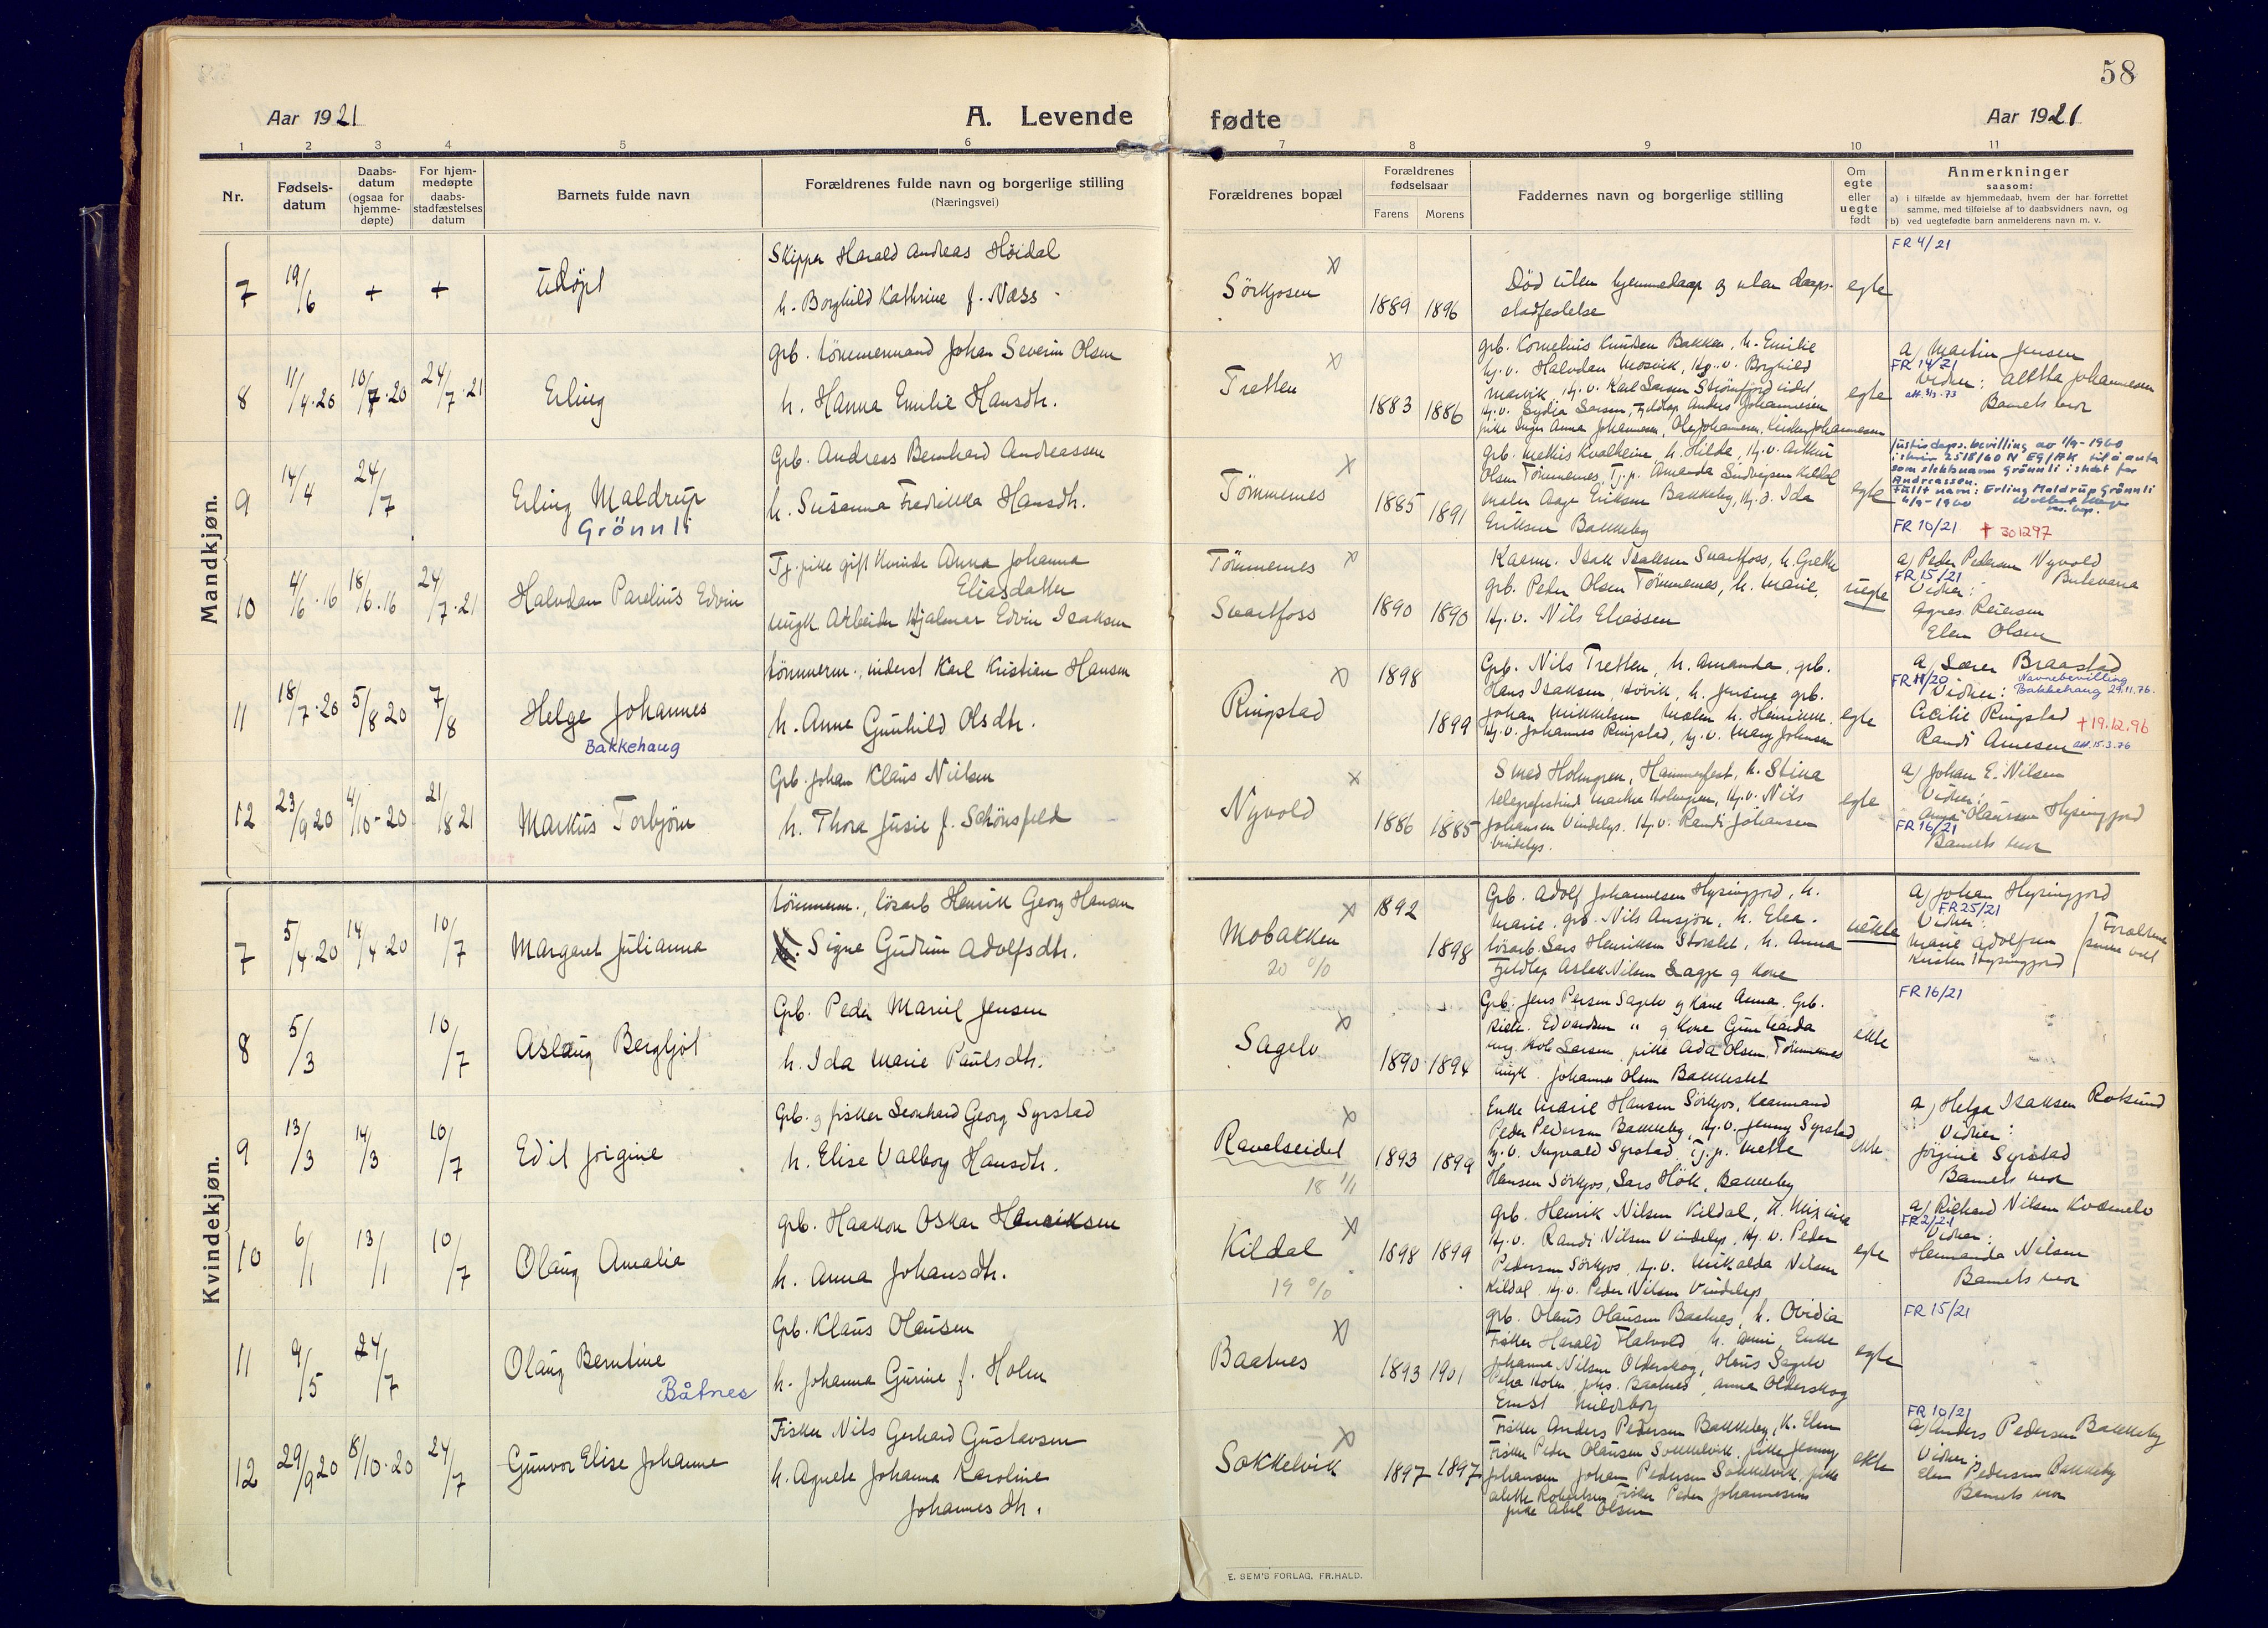 58
Aar 1921
A. Levende
fødte
Aar 1921
1 2 3 4 5 6 7 8 9 10 11
Nr.
Fødsels-
datum
Daabs-
datum
(ogsaa for
hjemme-
døpte)
For hjem-
medøpte
daabs-
stadfæstelses
datum
Barnets fulde navn
Forældrenes fulde navn og borgerlige stilling
(Næringsvei)
Forældrenes bopæl
Forældrenes
fødselsaar
Farens Morens
Faddernes navn og borgerlige stilling
Om
egte
eller
uegte
født
Anmerkninger
saasom:
a) i tilfælde av hjemmedaab, hvem der har forrettet
samme, med tilføielse af to daabsvidners navn, og
b) ved uegtefødte barn anmelderens navn m. v.
Mandkjøn.
7 19/6 + + Udøpt
Skipper Harald Andreas Høidal
h. Borghild Kathrine f. Næss
Sörkjosen 1889 1896
Død uten hjemmedaap og uten daaps-
stadfestelse
egte
FR 4/21
8 11/4.20 10/7.20 24/7.21 Erling
Grb. tömmermand Johan Severin Olsen
h. Hanna Emilie Hansdtr.
Tretten 1883 1886
grb. Kornelius Knudsen Bakken, h. Emilie
Hj. v. Halvdan Mosvik, Hj. v. Borghild
Mosvik, Hj. v. Karl Larsen Strömfjord
Hj. v. Lydia Larsen, Fjeldlap Anders Johannesen
pike Inger Anna Johannesen, Ole Johannesen, Kirsten Johannesen
egte
a) Martin Jensen
FR 14/21
Vidner: Aletta Johannesen
Barnets mor
9 14/4 24/7 Erling Maldrup
Grönnli
Grb. Andreas Bernhard Andreassen
h. Susanna Fredrikka Hansdtr.
Tömmernes 1885 1891
grb. Mathis Kvalheim, h. Hilda, Hj. v. Arthur
Olsen Tömmernes, Tj. p. Amanda Kildal
Maler Aage Eriksen Bakkeby, Hj. v. Ida
Eriksen Bakkeby
egte
Justisdeps. bevilling av 1/9-1960
i skriv 2518/60 N EG/AK til å anta
som slektsnavn Grönnli i stedet for
Andreassen.
Fullt navn: Erling Maldrup Grönnli
6/9-1960
FR 10/21 + 301297
10 4/6.16 18/6.16 24/7.21 Halvdan Parelius Edvin
Tj. pike gift kvinde Anna Johanna
Eliasdatter
Ungk Arbeider Hjalmar Edvin Isaksen
Tömmernes
Svartfoss 1890 1890
Kaarm. Isak Isaksen Svartfoss, h. Grethe
grb. Peder Olsen Tömmernes, h. Marie,
Hj. v. Nils Eliassen
uegte
a) Peder Pedersen Nyvold
FR 15/21
Vidner:
Agnes Reiersen
Elen Olsen
11 18/7.20 5/8 20 7/8 Helge Johannes
Bakkehaug
tömmerm., inderst Karl Kristian Hansen
h. Anne Gunhild Olsdtr.
Ringstad 1898 1899
Grb. Nils Tretten, h. Amanda, grb.
Hans Isaksen, Hovik, h. Jensine grb.
Johan Mikkelsen Malen h. Henrikke.
Hj. v. Johannes Ringstad, Hj. v. Mary Johnsen
egte
a) Lærer Braastad
FR 11/20 Navnebevilling
Vidner: Bakkehaug 29.11.76.
Cecilie Ringstad +19.12.96
Randi Arnesen att. 15.3.76
12 23/9 20 4/10-20 21/8 21 Markus Torbjörn
Grb. Johan Klaus Nilsen
h. Thora Jusie f. Schönsfeld
Nyvold 1886 1885
Smed Holmgren, Hammerfest, h. Stina
telegrafistinde Martha Holmgren, Hj. v. Nils
Johansen Vindelys. Hj. v. Randi Johansen
Vindelys.
egte
a) Johan E. Nilsen
Vidner:
Anna Olaussen Hysingjord
FR 16/21
Barnets mor
Kvindekjøn.
7 5/4.20 14/4.20 10/7 Margaret Julianna
tömmerm., lösarb Henrik Georg Hansen
Signe Gudrun Adolfsdtr.
Mobakken 1892 1898
20 %
Grb. Adolf Johannesen Hysingjord, h.
Marie, grb. Nils Ansjön, h. Elea.
lösarb. Lars Henriksen Storslet, h. Anna
Fjeldlap Aslak Nilsen Sagge og Kone
uekte
a) Johan Hysingjord
FR 25/21
Vidner:
Marie Adolfsen
Kirsten Hysingjord
8 5/3 10/7 Aslaug Bergljot
Grb. Peder Mariel Jensen
h. Ida Marie Paulsdtr.
Sagelv 1890 1894
Grb. Jens Persen Sagelv og Kone Anna. Grb.
Rich. Edvardsen " og Kone Gunharda
ung. Kole Larsen, pike Ada Olsen, Tömmernes
ungk. Johannes Olsen Bakkeslet
ekte
FR 16/21
9 13/3 14/3 10/7 Edit Jörgine
Grb. og fisker Leonhard Georg Syrstad
h. Elise Valborg Hansdtr.
Ravelseidet 1893 1899
Enke Marie Hansen Sörkjos, Kaarmand
Peder Pedersen Bakkeby, Hj. v. Jenny Syrstad
Hj. v. Ingvald Syrstad, Tj. p. Mette
Hansen Sörkjos, Lars Hök, Bakkeby
ekte
a) Helga Isaksen Rotsund
Vidner:
Jörgine Syrstad
Barnets mor
10 6/1 13/1 10/7 Olaug Amalia
grb. Haakon Oskar Henriksen
h. Anna Johansdtr.
Kildal 1898 1899
19 %
grb. Henrik Nilsen Kildal,
Hj. v. Randi Nilsen Vindelys, Hj. v. Peder
Pedersen Sörkjos, Hj. v. Mikalda Nilsen
Kildal, Hj. v. Peder Nilsen Vindelys
egte
a) Richard Nilsen Kvænelv
FR 2/21
Vidner:
Hermanda Nilsen
Barnets mor
11 9/5 24/7 Olaug Berntine
Båtnes
Grb. Klaus Olausen
h. Johanna Gurine f. Holm
Baatnes 1893 1901
grb. Olaus Olausen Baatnes, h. Ovidia
Fisker Harald Flatvold h. Anni, Enke
Johanna Nilsen Olderskog, Olaus Sagelv
Petra Holm, Johs. Baatnes, Anna Olderskog
Ernst Mildsborg
egte
FR 15/21
12 29/9 20 8/10.20 24/7 Gunvor Elise Johanne
Fisker Nils Gerhard Gustavsen
h. Agnete Johanna Karoline
Johannesdtr.
Sokkelvik 1897 1897
Fisker Anders Pedersen Bakkeby, K. Elen
Fisker Peder Olausen Sokkelvik, pike Jenny
Johansen Johan Pedersen Sokkelvik, pike
Alette Robertsen Fisker Peder Johannesens
pike Abel Olsen
ekte
FR 10/21
a) Anders Pedersen Bakkeby
Vidner:
Elen Pedersen Bakkeby
Barnets mor
E. SEM'S FORLAG, FR.HALD.